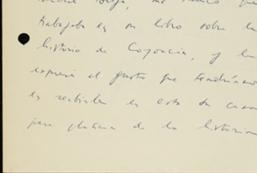 trabaja en su libro sobre la
historia de Coyoacán, y le
expresé el gusto que tendríamos
en recibirle en esta su casa
para platicar de la historia